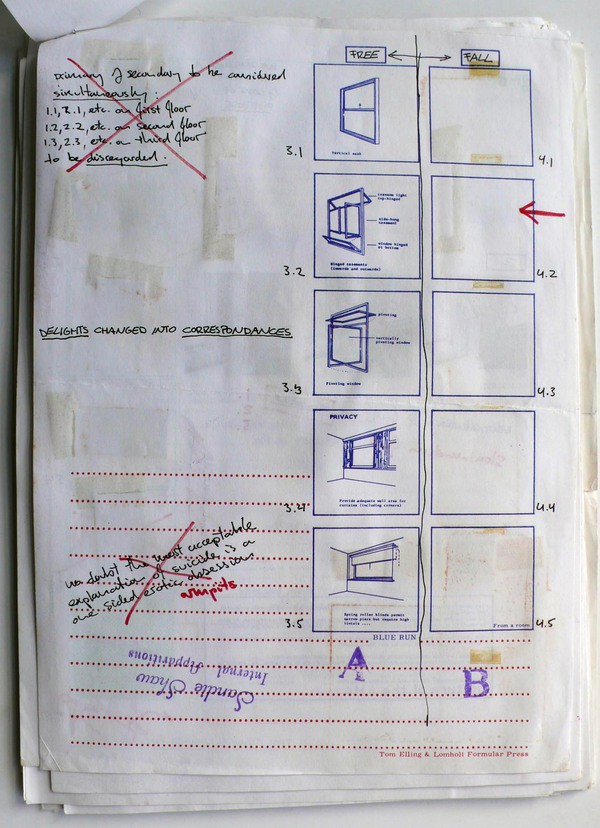 primary & secondary to be considered
simultaneously:
1.1, 2.1, etc. on first floor
1.2, 2.2, etc. on second floor
1.3, 2.3, etc. on third floor
to be disregarded.
FREE
FALL
Vertical sash
3.1
4.1
transom light
top-hinged
side-hung
casement
window hinged
at bottom
Hinged casements
(inwards and outwards)
3.2
4.2
DELIGHTS CHANGED INTO CORRESPONDANCES
pivoting
vertically
pivoting window
Pivoting window
3.3
4.3
PRIVACY
Provide adequate wall area for
curtains (including corners)
3.4
4.4
no doubt the most acceptable
explanation of suicide is a
one sided erotic obsession
armpits
Spring roller blinds permit
narrow piers but require high
lintels ....
3.5
From a room
4.5
BLUE RUN
A
B
Sandie Shaw
Internal Apparitions
Tom Elling & Lomholt Formular Press